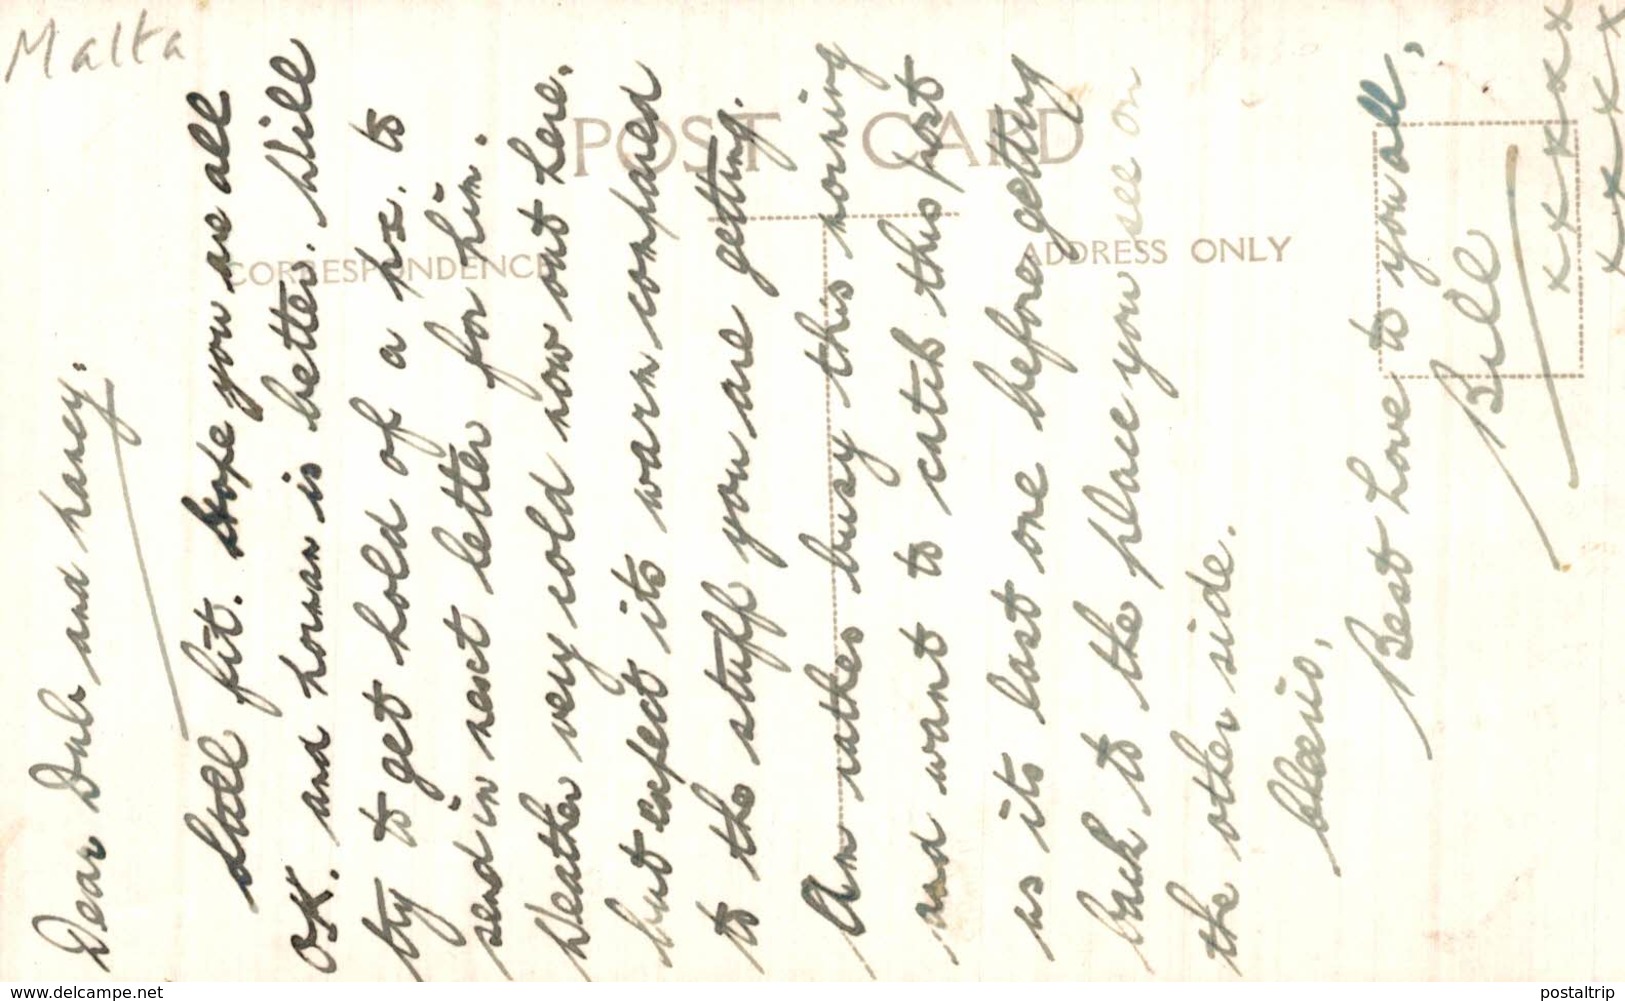 Malta
Dear Dub and nancy.
Still fit. Hope you are all
OK. and norman is better. Will
try to get hold of a P.C. to
send in next letter for him.
Weather very cold now out here.
but expect its warm compared
to the stuff you are getting.
Am rather busy this morning
and want to catch this post
as its last one before getting
back to the place you see on
the other side.
Cheerio,
Best Love to you all,
Bill
xxxxxx
xxxxx
POST CARD
CORRESPONDENCE
ADDRESS ONLY
www.delcampe.net
postaltrip